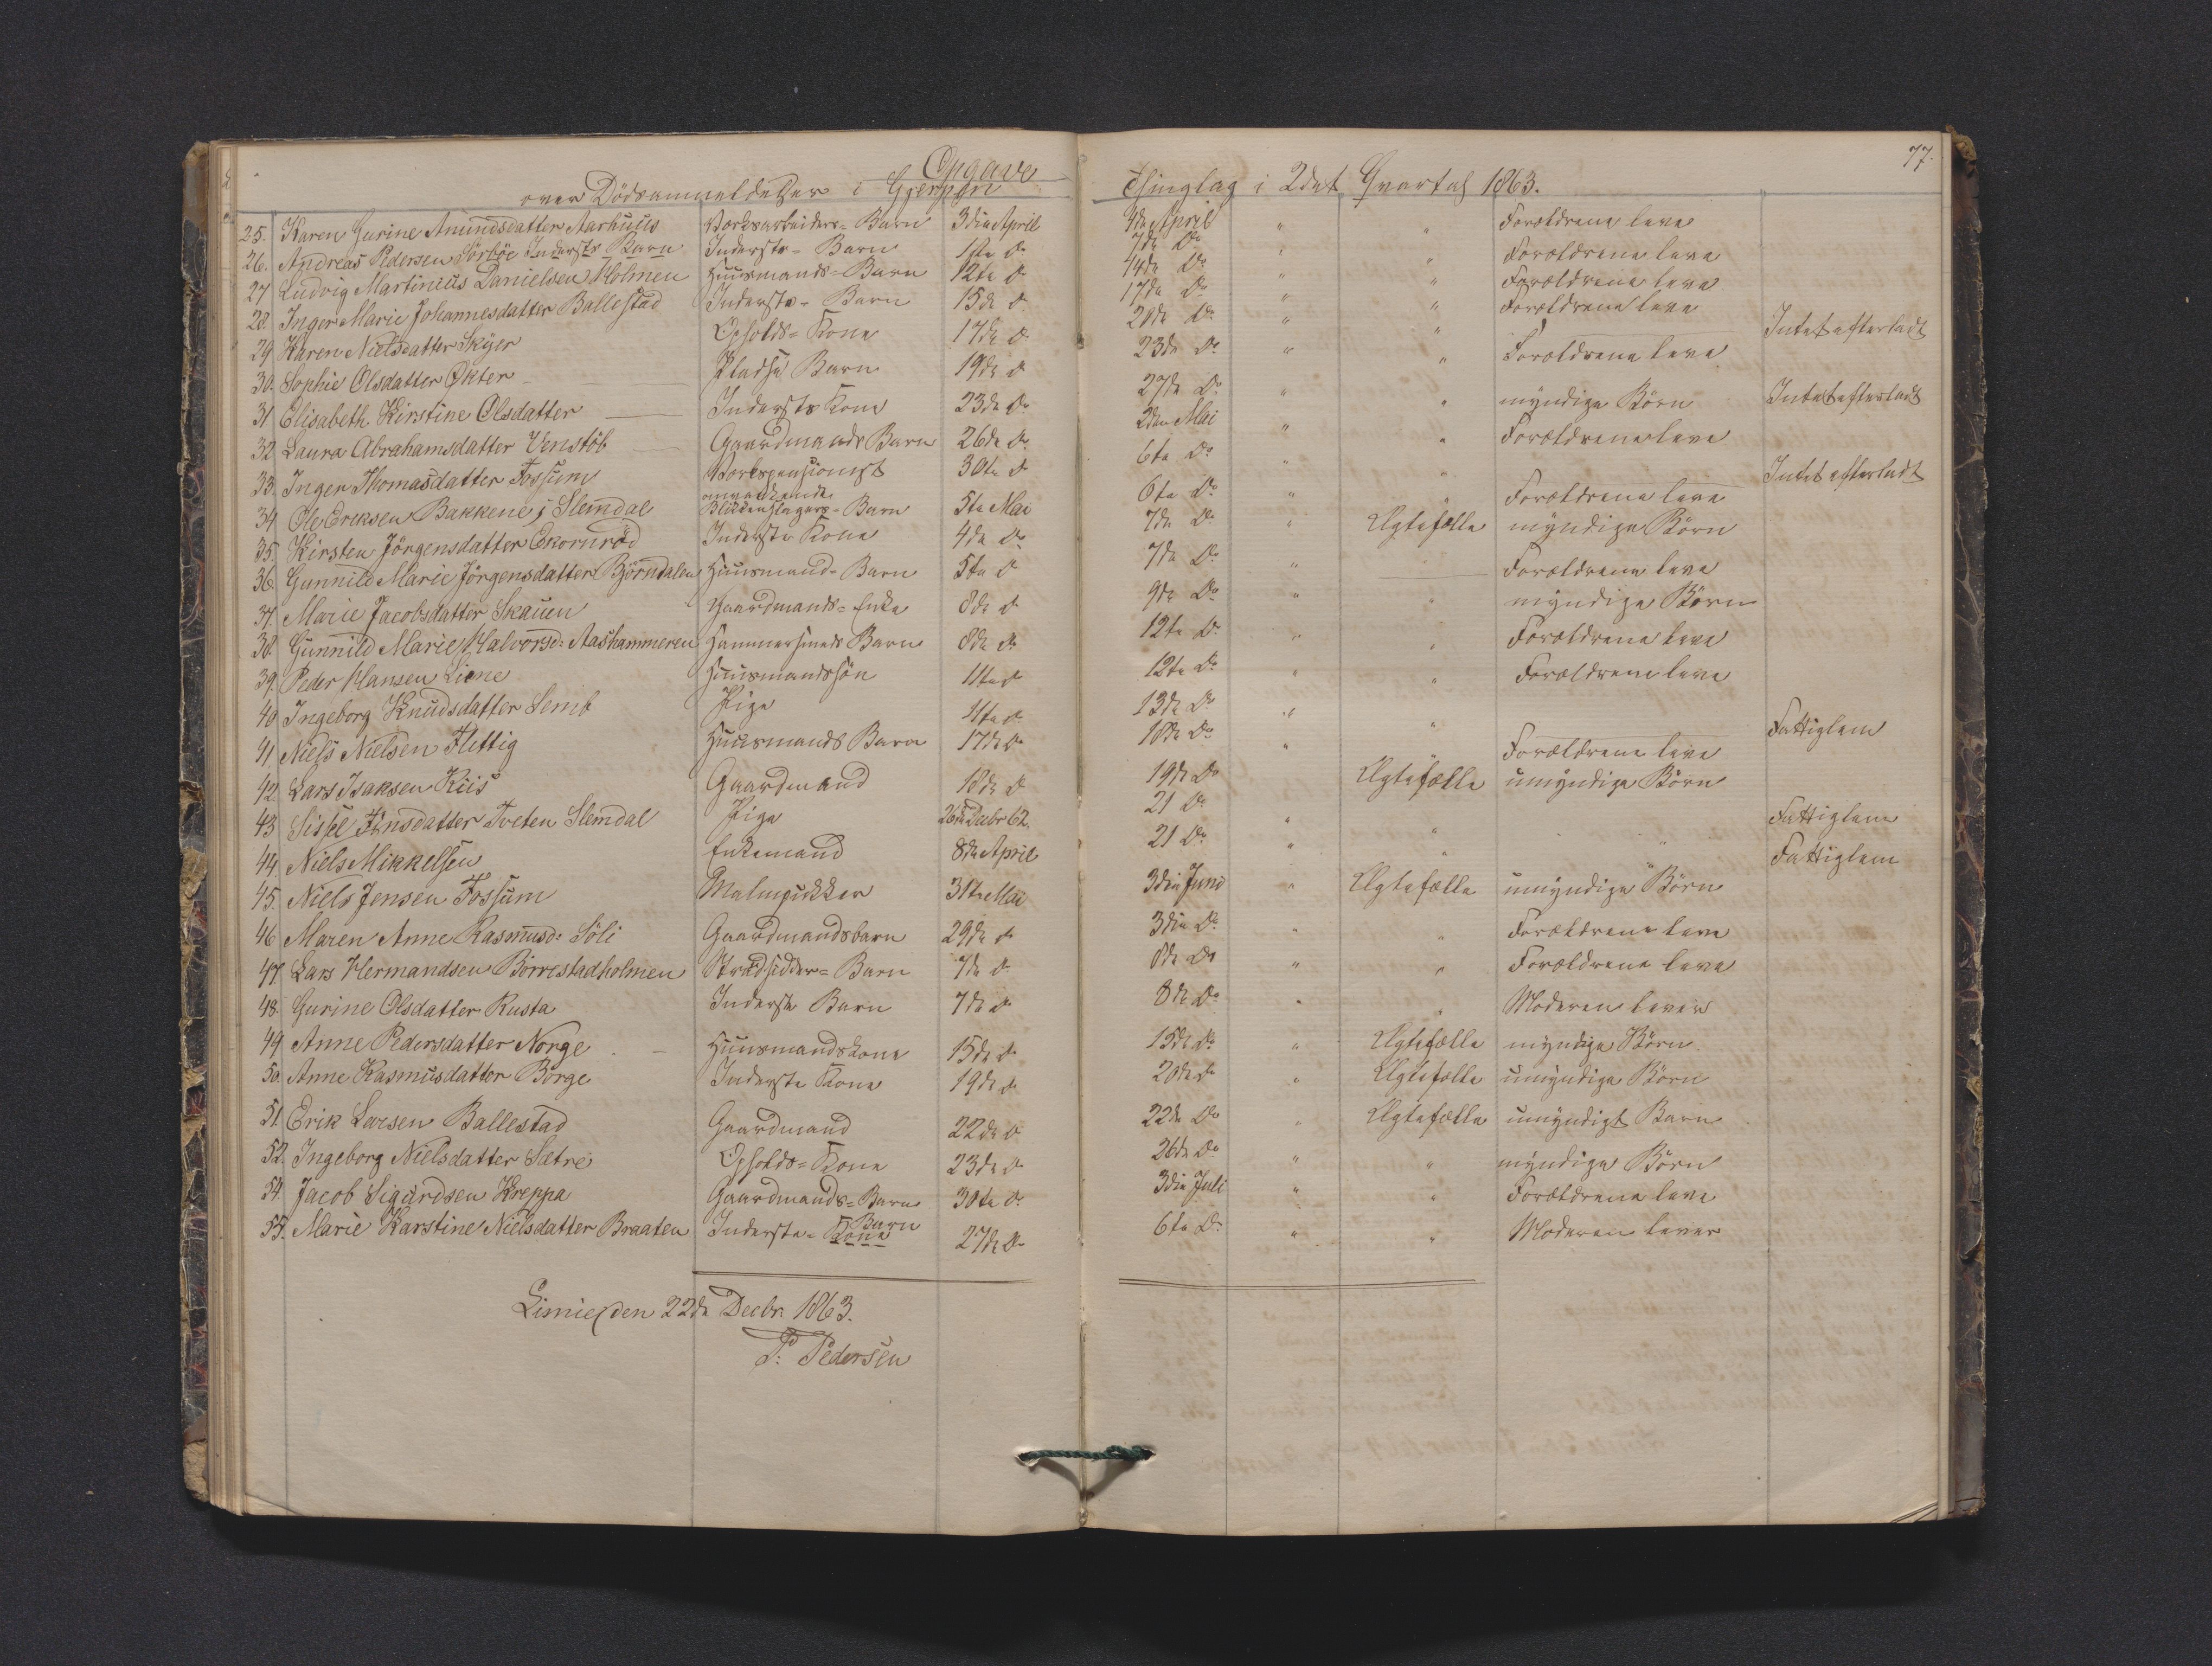 77.
Opgave
over Dödsanmeldelser i Gjerpen Thinglag i 2det Qvartal 1863.
25. Karen Gurine Amundsdatter Aarhuus Værksarbeiders=Barn 3die April 4de April " " Forældrene leve
26. Andreas Pedersen Sörböe Inderste Barn Inderste=Barn 1ste Do 7de Do " " Forældrene leve
27 Ludvig Martinius Danielsen Holmen Huusmands=Barn 12te Do 14de Do " " Forældrene leve
28. Inger Marie Johannesdatter Ballestad Inderste=Barn 15de Do 17de Do " " Forældrene leve
29 Karen Nielsdatter Skyer Opholds=Kone 17de Do 20de Do " " Intet efterladt
30. Sophie Olsdatter Økter Pladse Barn 19de Do 23de Do " " Forældrene leve
31 Elisabeth Kirstine Olsdatter Inderste Kone 23de Do 27de Do " " myndige Börn Intet efterladt
32 Laura Abrahamsdatter Venstöb Gaardmands Barn 26de Do 2den Mai " " Forældrene leve
33. Inger Thomasdatter Fossum Værkspensionist 30te Do 6te Do " " Intet efterladt
34 Ole Eriksen Bakkene i Slemdal Blikkenslagers=Barn 5te Mai 6te Do " " Forældrene leve
35. Kirsten Jörgensdatter Ekornröd Inderste Kone 4de Do 7de Do " Ægtefælle myndige Börn
36. Gunnild Marie Jörgensdatter Björndalen Huusmand=Barn 5te Do 7de Do " Forældrene leve
37. Marie Jacobsdatter Skauen Gaardmands=Enke 8de Do 9de Do " " myndige Börn
38. Gunnild Marie Halvorsd: Aashammeren Hammersmeds Barn 8de Do 12te Do " " Forældrene leve
39. Peder Hansen Liene Huusmandssön 11te Do 12te Do " " Forældrene leve
40 Ingeborg Knudsdatter Semb Pige 11te Do 13de Do " " Fattiglem
41 Niels Nielsen Flittig Huusmands Barn 17de Do 18de Do " Forældrene leve
42 Lars Isaksen Kiis Gaardmand 18de Do 19de Do Ægtefælle umyndige Börn
43 Sissel Finsdatter Tveten Slemdal Pige 26de Decbr 62. 21 Do " " Fattiglem
44. Niels Mikkelsen Enkemand 8de April 21 Do " " " Fattiglem
45. Niels Jensen Fossum Malmpukker 31te Mai 3die Juni " Ægtefælle umyndige Börn
46 Maren Anne Rasmusd: Söli Gaardmandsbarn 29de Do 3die Do " " Forældrene leve
47. Lars Hermandsen Börrestadholmen Strandsidder=Barn 7de Do 8de Do " " Forældrene leve
48. Gurine Olsdatter Rusta Inderste Barn 7de Do 8de Do " " Moderen lever
49 Anne Pedersdatter Norge Huusmandskone 15de Do 15de Do " Ægtefælle myndige Börn
50. Anne Rasmusdatter Borge Inderste Kone 19de Do 20de Do " Ægtefælle umyndige Börn
51. Erik Larsen Ballestad Gaardmand 22de Do 22de Do " Ægtefælle umyndigt Barn
52. Ingeborg Nielsdatter Sætre Opholds=Kone 23de Do 26de Do " " myndige Börn
54. Jacob Sigurdsen Kreppa Gaardmands=Barn 30te Do 3die Juli " " Forældrene leve
55. Marie Karstine Nielsdatter Braaten Inderste=Kone Barn 27de Do 6te Do " " Moderen lever
Limie den 22de Decbr 1863.
P: Pedersen